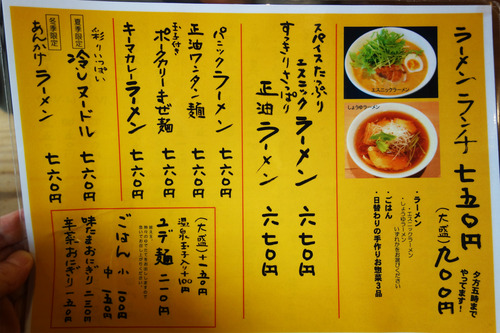 ラーメンランチ 七五〇円
(大盛) 九〇〇円
夕方五時まで
やってます!
・ラーメン
・エスニックラーメン
・しょうゆラーメン
いずれかをお選びください
・ごはん
・日替わりの手作りお惣菜3品
エスニックラーメン
しょうゆラーメン
スパイスたっぷり
エスニックラーメン 六七〇円
すっきりさっぱり
正油ラーメン 六七〇円
パニックラーメン 七六〇円
正油ワンタン麺 七六〇円
玉子付き
ポークカリーまぜ麺 七六〇円
キーマカレーラーメン 七六〇円
彩りいっぱい
夏季限定
冷しヌードル 七六〇円
冬季限定
あんかけラーメン 七六〇円
(大盛) 十一五〇円
温泉玉子トッピング 100円
ユデ麺 二一〇円
ごはん 小 100円
中 150円
味たまおにぎり 二三〇円
辛菜おにぎり 一五〇円